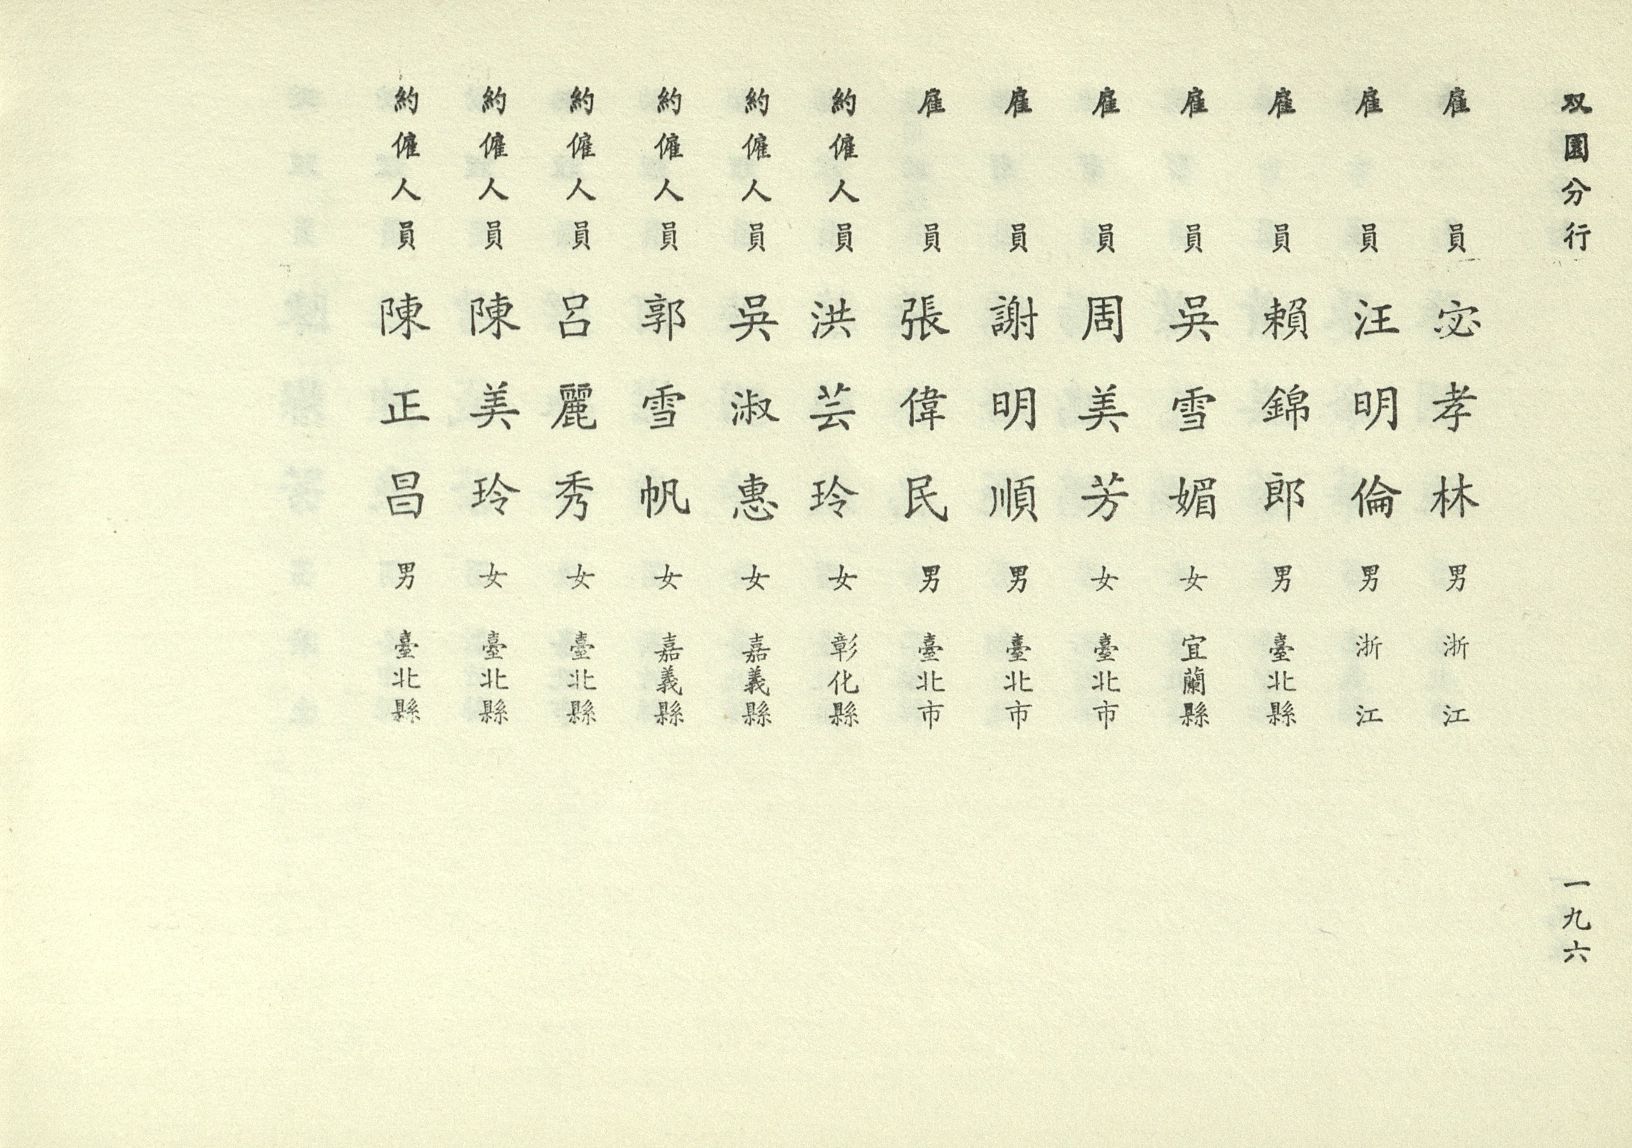 双園分行
一九六
雇員 宓孝林 男 浙江
雇員 汪明倫 男 浙江
雇員 賴錦郎 男 臺北縣
雇員 吳雪媚 女 宜蘭縣
雇員 周美芳 女 臺北市
雇員 謝明順 男 臺北市
雇員 張偉民 男 臺北市
約僱人員 洪芸玲 女 彰化縣
約僱人員 吳淑惠 女 嘉義縣
約僱人員 郭雪帆 女 嘉義縣
約僱人員 呂麗秀 女 臺北縣
約僱人員 陳美玲 女 臺北縣
約僱人員 陳正昌 男 臺北縣